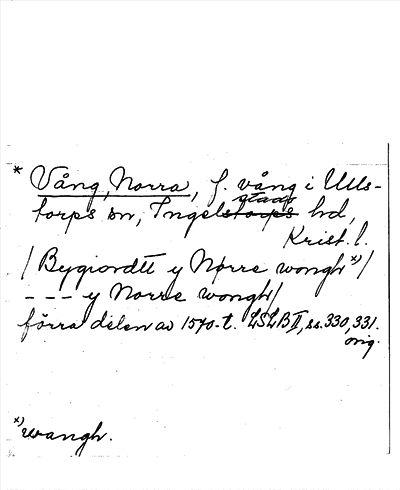 * Vång, Norra, f. vång i Ulls-
stads
torps sn, Ingelstorps hd,
Krist. l.
/ Bygiordtt y Nørre wongh x) /
- - - y Norre wongh /
förra delen av 1570-t. LSLB II, ss. 330, 331.
orig.
x) wangh.